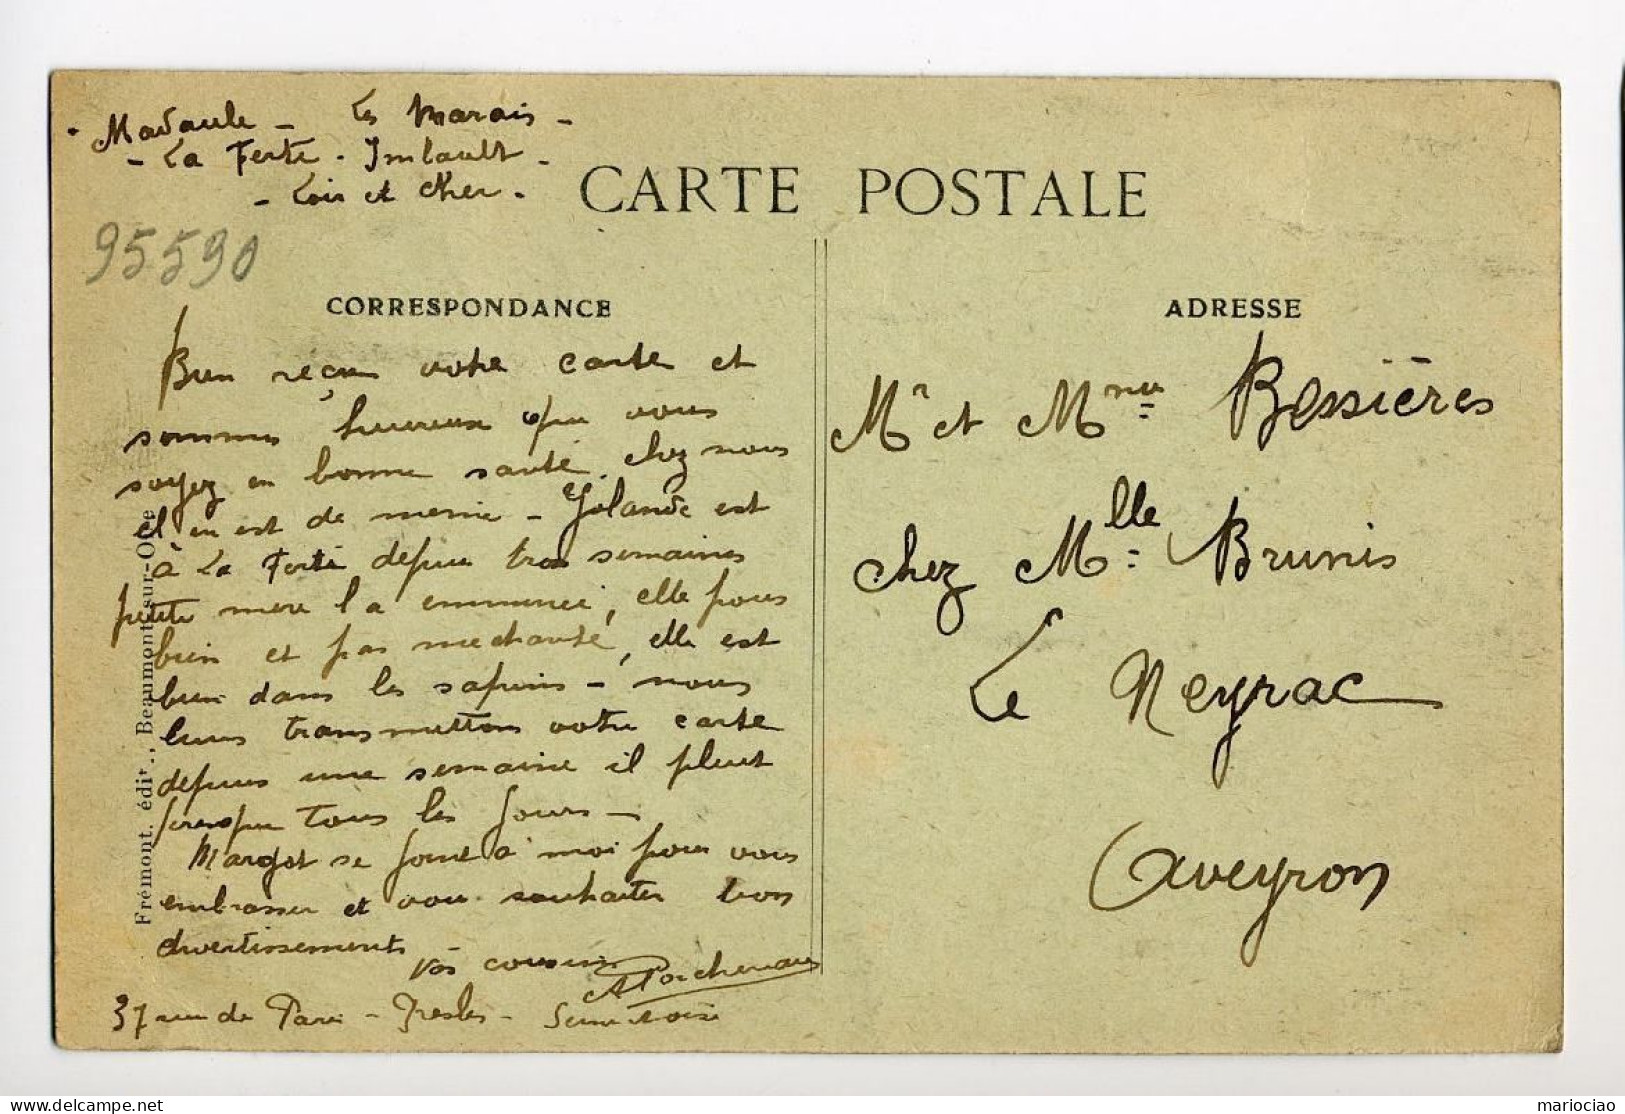 Madaule - Les Marais -
- La Ferté - Imbault -
- Loir et Cher -
CARTE POSTALE
95590
CORRESPONDANCE
ADRESSE
Bien reçu votre carte et
sommes heureux que vous
soyez en bonne santé. chez nous
il en est de meme - Yolande est
à La Ferté depuis trois semaines
petite mere l'a emmenée, elle
bien et pas mechante, elle est
bien dans les sapins - nous
leurs transmettons votre carte
depuis une semaine il pleut
presque tous les jours -
Margot se joint à moi pour vous
embrasser et vous souhaiter bon
divertissements
Vos cousins
37 rue de Paris - Presles - Seine et Oise
Mr et Mme Bessières
chez Mlle Brunis
Le Neyrac
Aveyron
Frémont, édit., Beaumont-sur-Oise
delcampe.net
mariociao